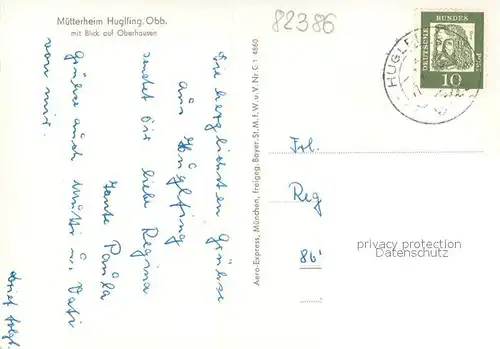 Mütterheim Huglfing, Obb.
mit Blick auf Oberhausen
82386
Die herzlichsten Grüße
aus Huglfing
sendet Dir liebe Regina
Tante Paula
Grüße auch Mutti u. Vati
von mir.
Brief folgt.
Aero-Express, München, freigeg. Bayer. St. M. f. W. u. V. Nr. C-1 4860
HUGLFI
DEUTSCHE BUNDES
10
Frl.
Reg
privacy protection
Datenschutz